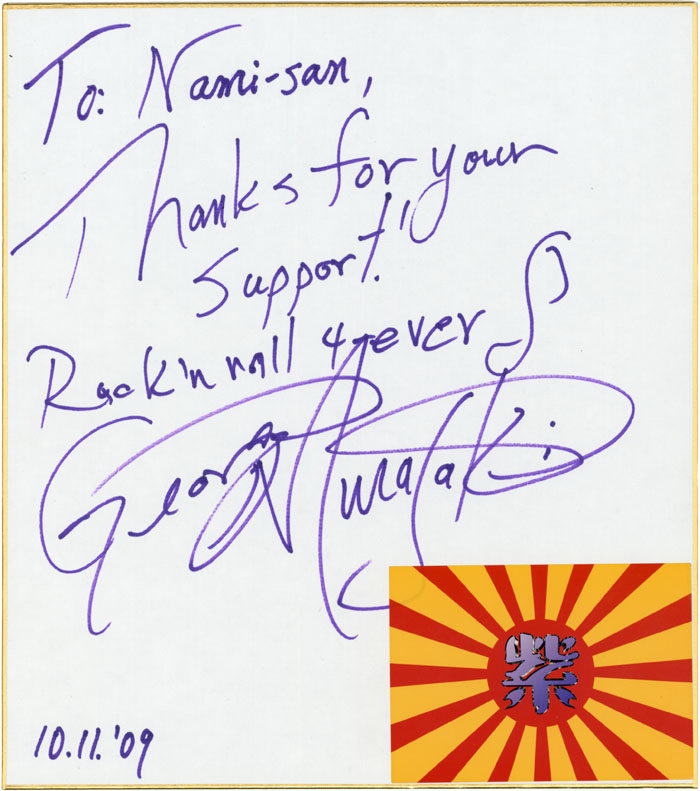 To: Nami-san,
Thanks for your
support!
Rock'n roll 4-ever
George Murasaki
紫
10.11.'09